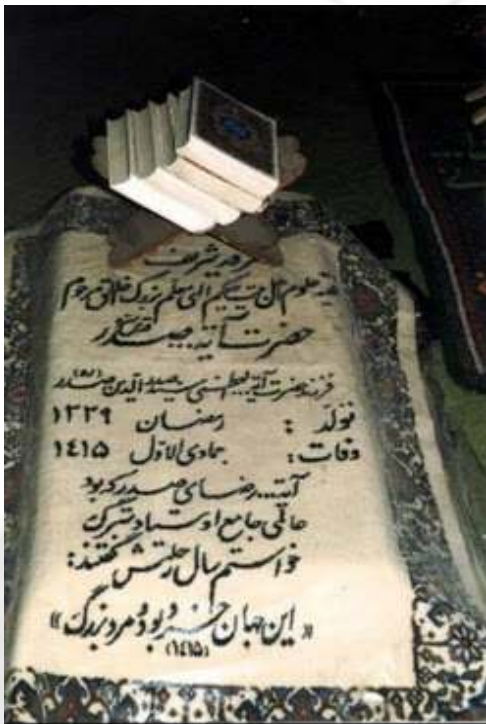 مرقد شریف
فقیه علوم آل محمد حکیم الهی معلم بزرگ اخلاق مرحوم
حضرت آیة الله صدر
فرزند حضرت آیة الله العظمی سید صدرالدین صدر
تولد : رمضان ۱۳۳۹
وفات : جمادی الاول ۱۴۱۵
آیت... رضای صدر که بود
عالمی جامع اوستاد سترک
خواستم سال رحلتش گفتند:
«این جهان خرد بود و مرد بزرگ»
(۱۴۱۵)